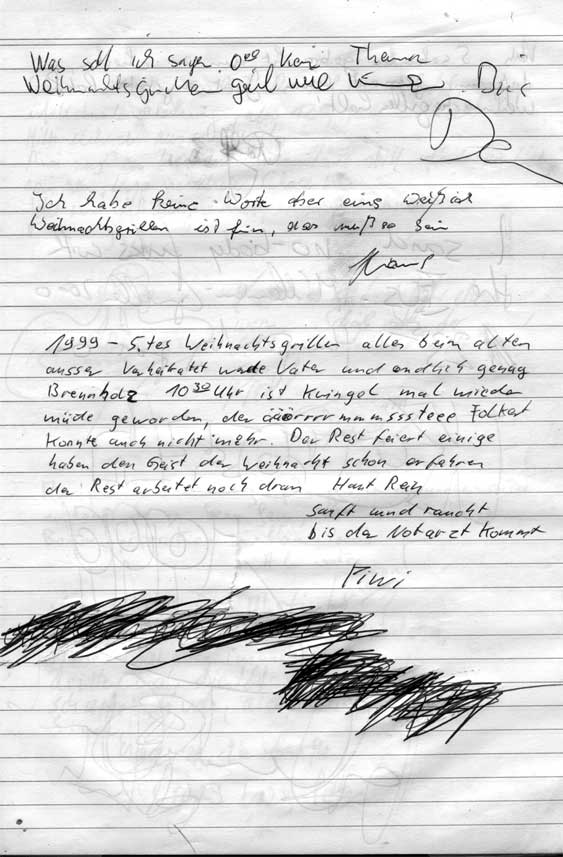 Was soll ich sagen kein Thema
Weihnachtsgrillen geil wie
Ich habe keine Worte aber eins weiß ich
Weihnachtsgrillen ist fein, das muß so sein
1999 – 5.tes Weihnachtsgrillen alles beim alten
ausser Verheiratet wurde Vater und endlich genug
Brennholz 10 30 Uhr ist Kringel mal wieder
müde geworden, der Folkert
konnte auch nicht mehr. Der Rest feiert einige
haben den Geist der Weihnacht schon erfahren
der Rest arbeitet noch dran Haut Rein
Sauft und raucht
bis der Notarzt kommt